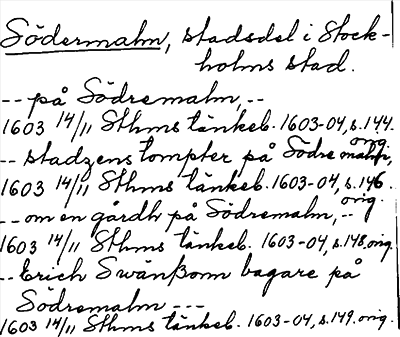 Södermalm, stadsdel i Stock-
holms stad.
-- på Södremalm, --
1603 14/11 Sthms tänkeb. 1603-04, s. 144.
orig.
-- stadzens tompter på Södre malm,
1603 14/11 Sthms tänkeb. 1603-04, s. 146
orig.
-- om en gårdh på Södremalm, --
1603 14/11 Sthms tänkeb. 1603-04, s. 148. orig.
-- Erich Swänßom bagare på
Södremalm ---
1603 14/11 Sthms tänkeb. 1603-04, s. 149. orig.